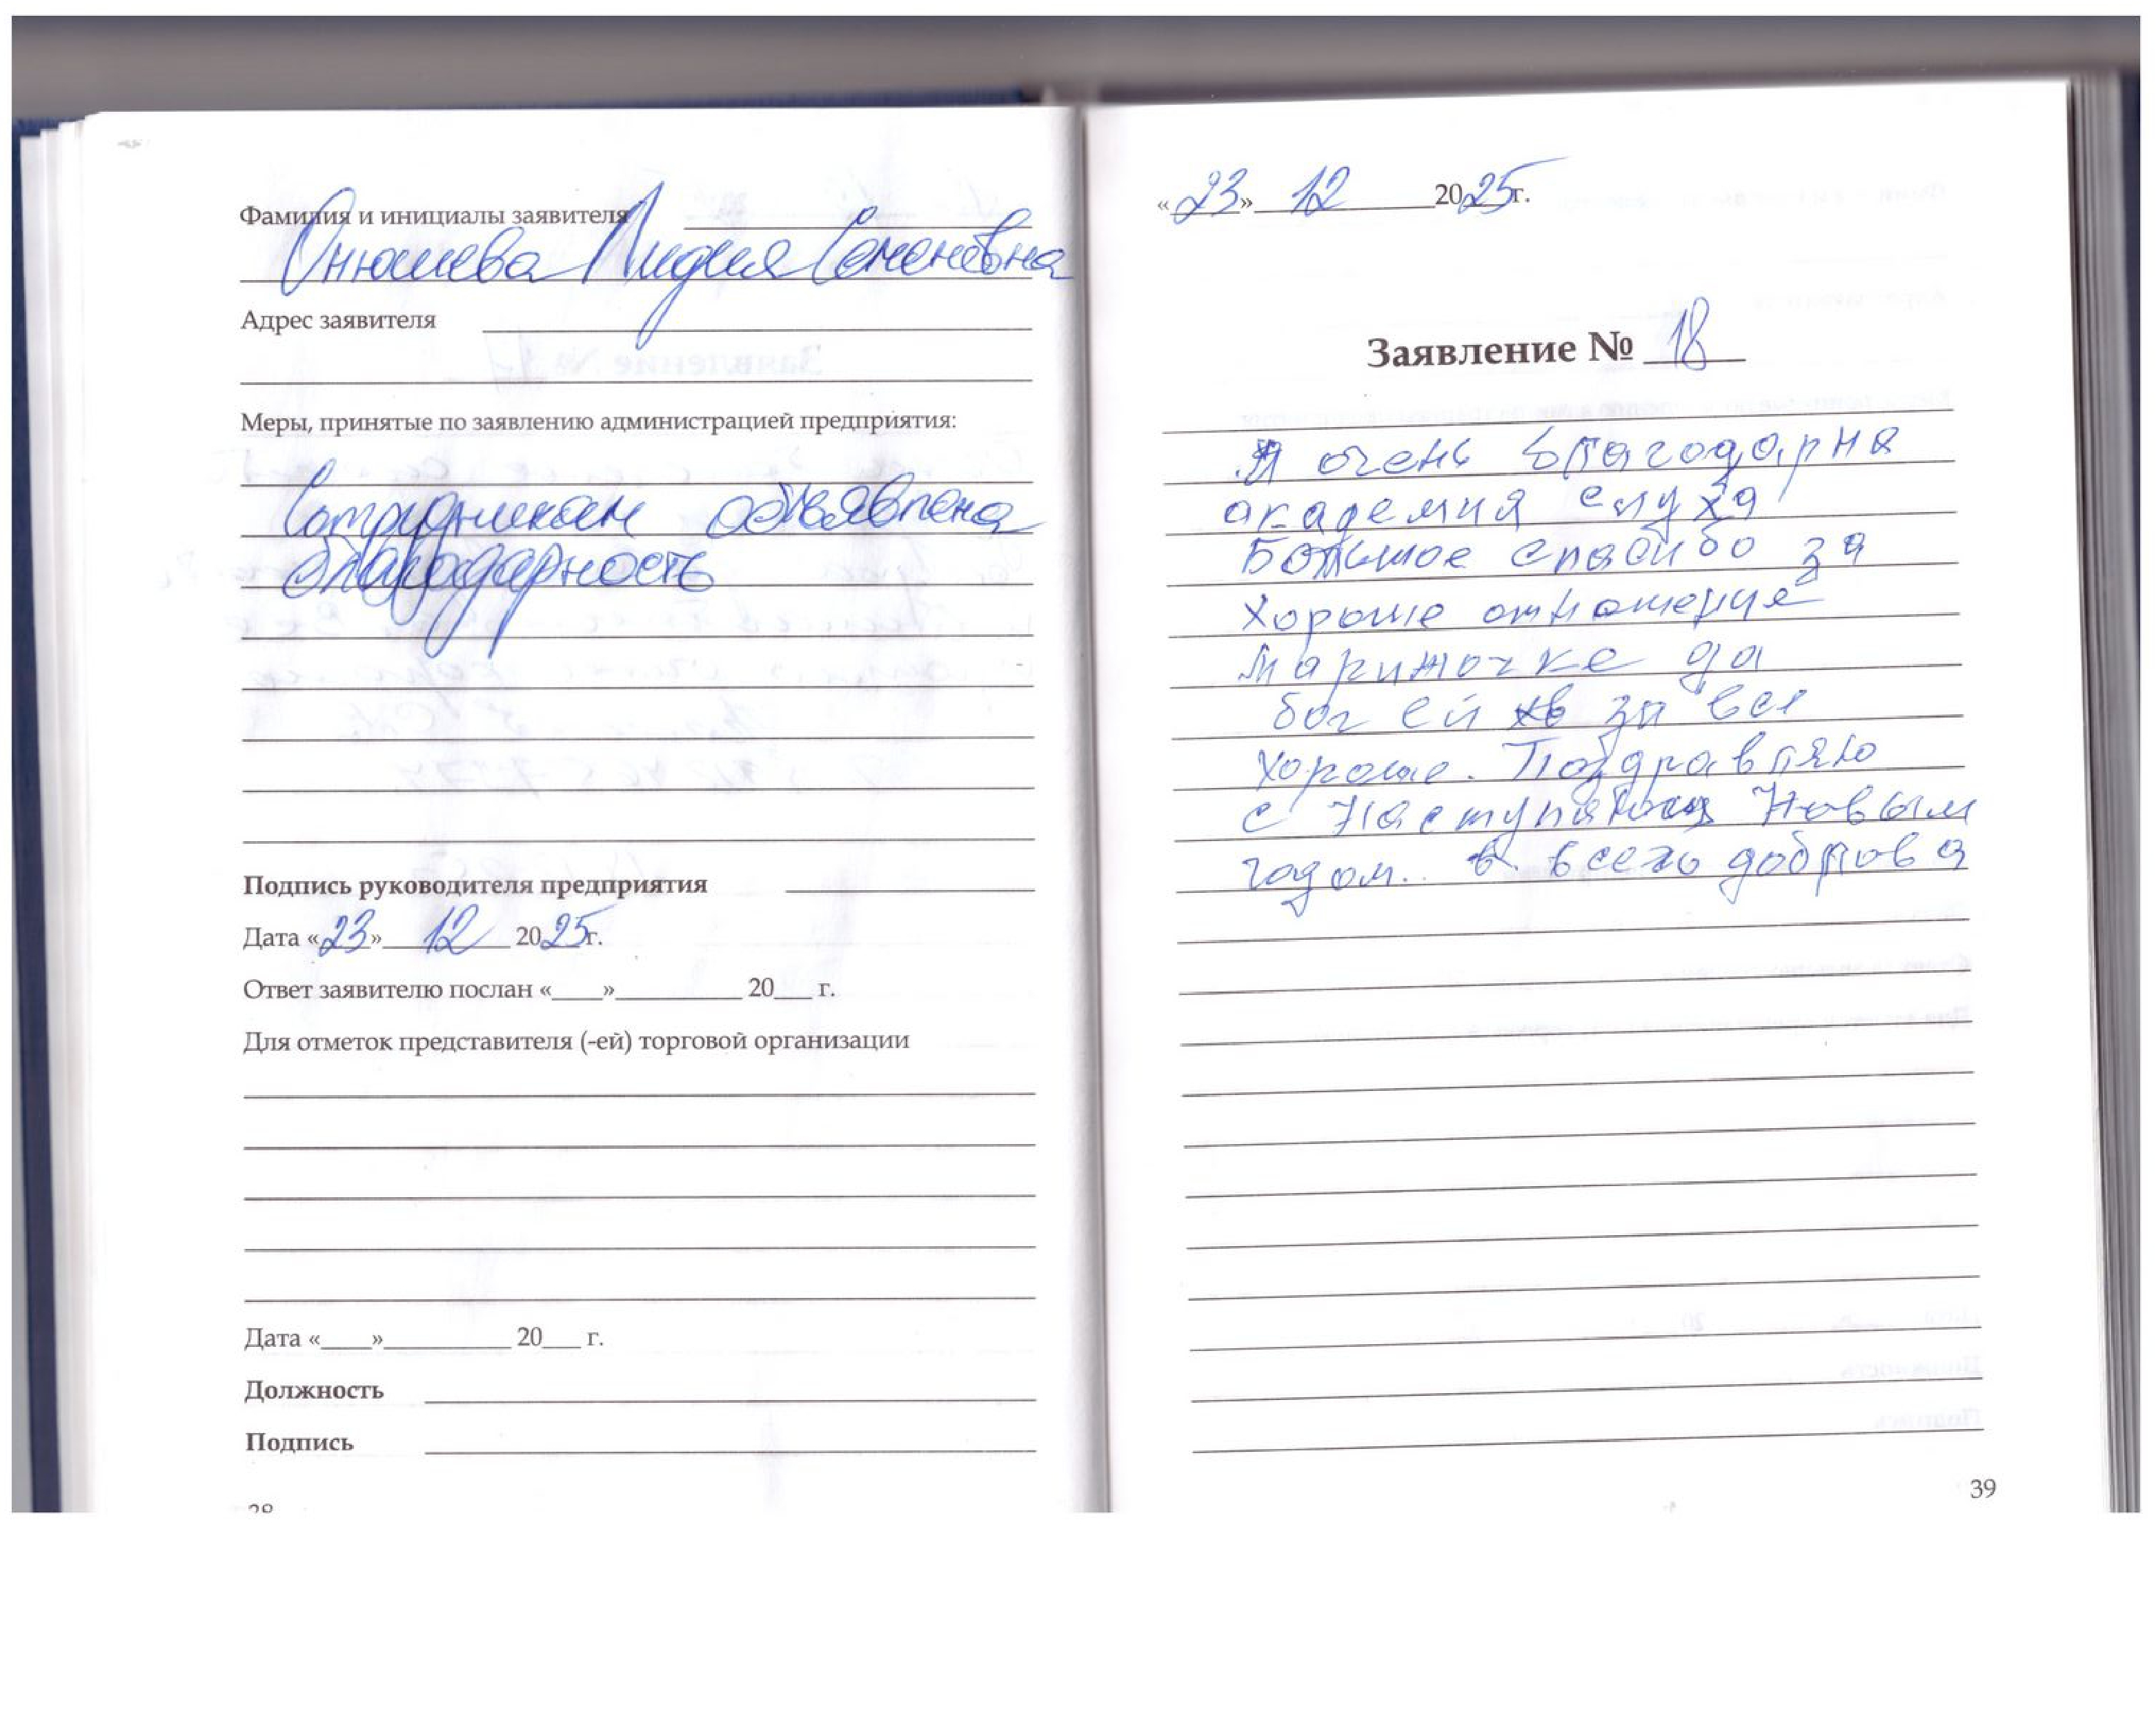 Фамилия и инициалы заявителя
Онюшева Лидия Семеновна
Адрес заявителя
Меры, принятые по заявлению администрацией предприятия:
Сотрудникам объявлена
благодарность
Подпись руководителя предприятия
Дата «23» 12 2025г.
Ответ заявителю послан «____»__________ 20___ г.
Для отметок представителя (-ей) торговой организации
Дата «____»__________ 20___ г.
Должность
Подпись
«23» 12 2025г.
Заявление № 18
Я очень благодарна
академия слуха
Большое спасибо за
хороше отношение
Мариночке да
бог ей за все
хороше. Поздравляю
с Новым
годом. в всего доброва
39